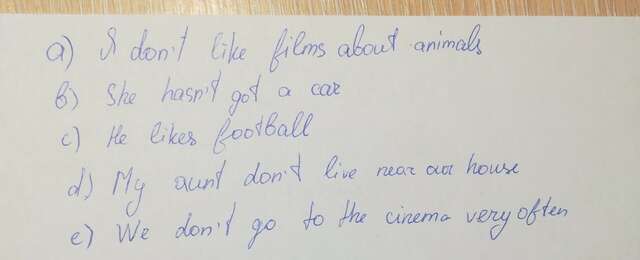 a) I don't like films about animals
b) She hasn't got a car
c) He likes football
d) My aunt don't live near our house
e) We don't go to the cinema very often